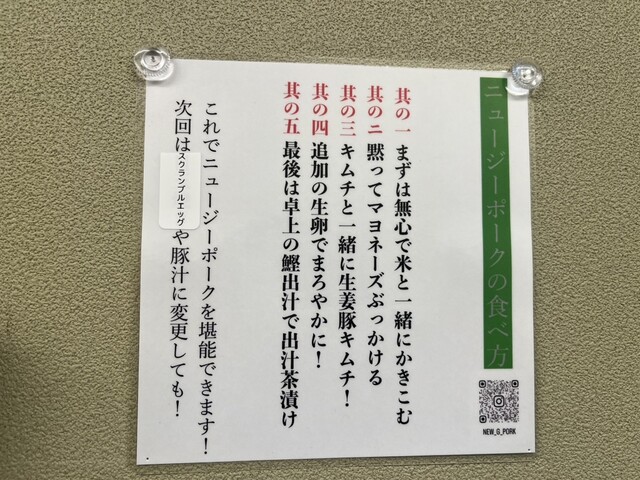 ニュージーポークの食べ方
其の一 まずは無心で米と一緒にかきこむ
其の二 黙ってマヨネーズぶっかける
其の三 キムチと一緒に生姜豚キムチ！
其の四 追加の生卵でまろやかに！
其の五 最後は卓上の鰹出汁で出汁茶漬け
これでニュージーポークを堪能できます！
次回はスクランブルエッグや豚汁に変更しても！
NEW_G_PORK